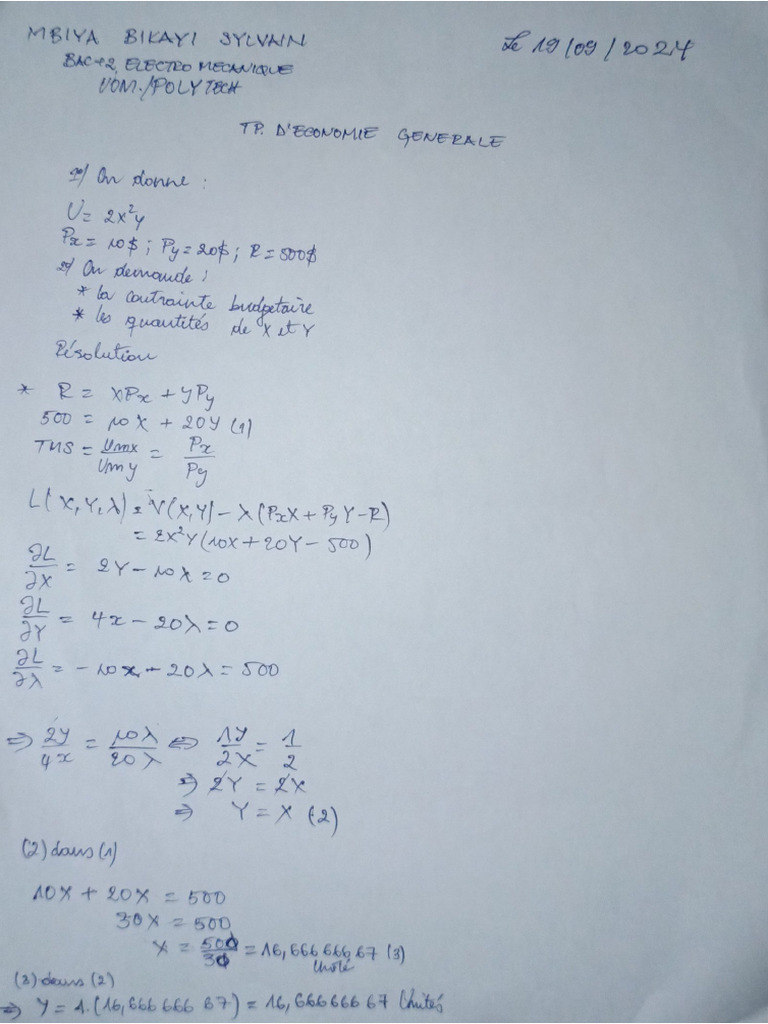 MBIYA BIKAYI SYLVAIN
Le 19/09/2024
BAC+2, ELECTRO MECANIQUE
UOM./POLYTECH
TP. D'ECONOMIE GENERALE
1°/ On donne :
U = 2x²y
Px = 10$ ; Py = 20$ ; R = 500$
2°/ On demande :
* la contrainte budgetaire
* les quantités de X et Y
Résolution
* R = XPx + YPy
500 = 10X + 20Y (1)
TMS = Umx/Umy = Px/Py
L(X,Y,λ) = V(X,Y) - λ(PxX + PyY - R)
= 2X²Y(10X + 20Y - 500)
∂L/∂X = 2Y - 10λ = 0
∂L/∂Y = 4x - 20λ = 0
∂L/∂λ = - 10x - 20λ = 500
⇒ 2y/4x = 10λ/20λ ⇔ 1y/2X = 1/2
⇒ 2Y = 2X
⇒ Y = X (2)
(2) dans (1)
10X + 20X = 500
30X = 500
X = 500/30 = 16,66666667 (3)
(3) dans (2)
⇒ Y = 1.(16,66666667) = 16,66666667 Unités